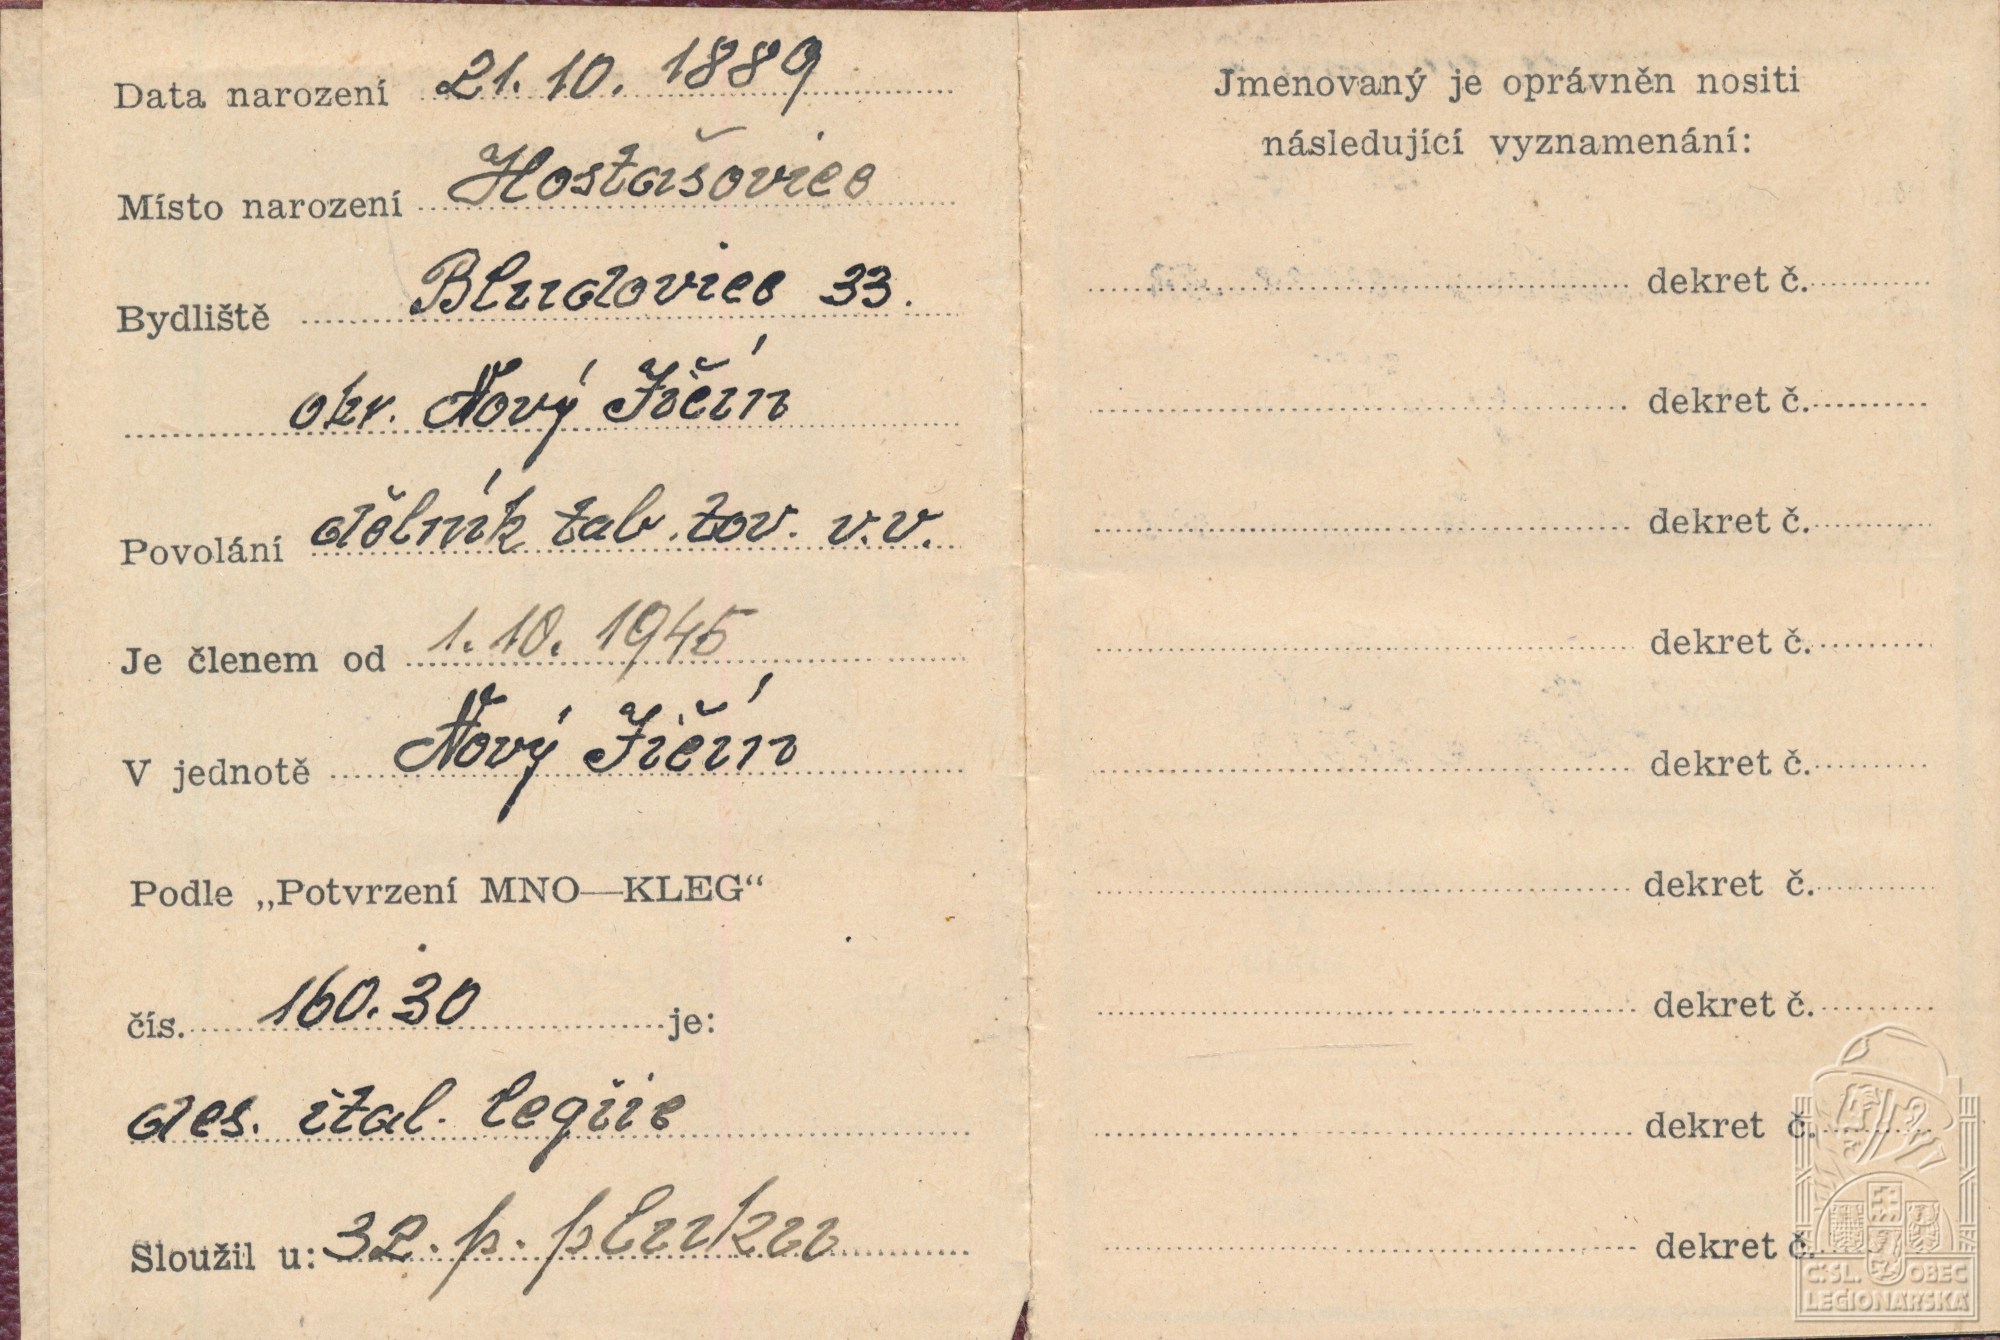 Data narození 21.10. 1889
Místo narození Hostašovice
Bydliště Bludovice 33.
okr. Nový Jičín
Povolání dělník tab. tov. v.v.
Je členem od 1.10. 1945
V jednotě Nový Jičín
Podle „Potvrzení MNO—KLEG“
čís. 160.30 je:
des. ital. legiie
Sloužil u: 32. p. pluku
Jmenovaný je oprávněn nositi
následující vyznamenání:
dekret č.
dekret č.
dekret č.
dekret č.
dekret č.
dekret č.
dekret č.
dekret č.
dekret č.
Č.SL. OBEC
LEGIONÁŘSKÁ